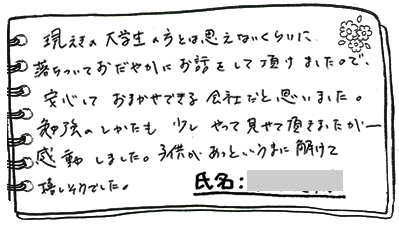 現えきの大学生の方とは思えないくらいに
落ちついておだやかにお話をして頂けましたので、
安心して おまかせできる 会社だと思いました。
勉強のしかたも 少し やって見せて頂きましたが
感動しました。子供が あっというまに 解けて
嬉しそうでした。
氏名: